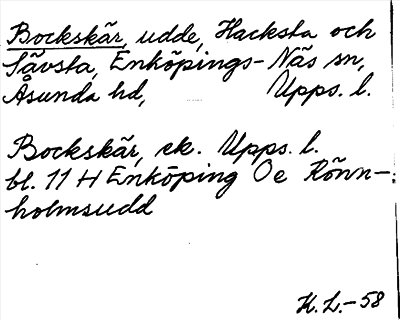 Bockskär, udde, Hacksta och
Sävsta, Enköpings-Näs sn,
Åsunda hd, Upps. l.
Bockskär, ek. Upps. l.
bl. 11 H Enköping Oe Rönn-
holmsudd
K.L.-58